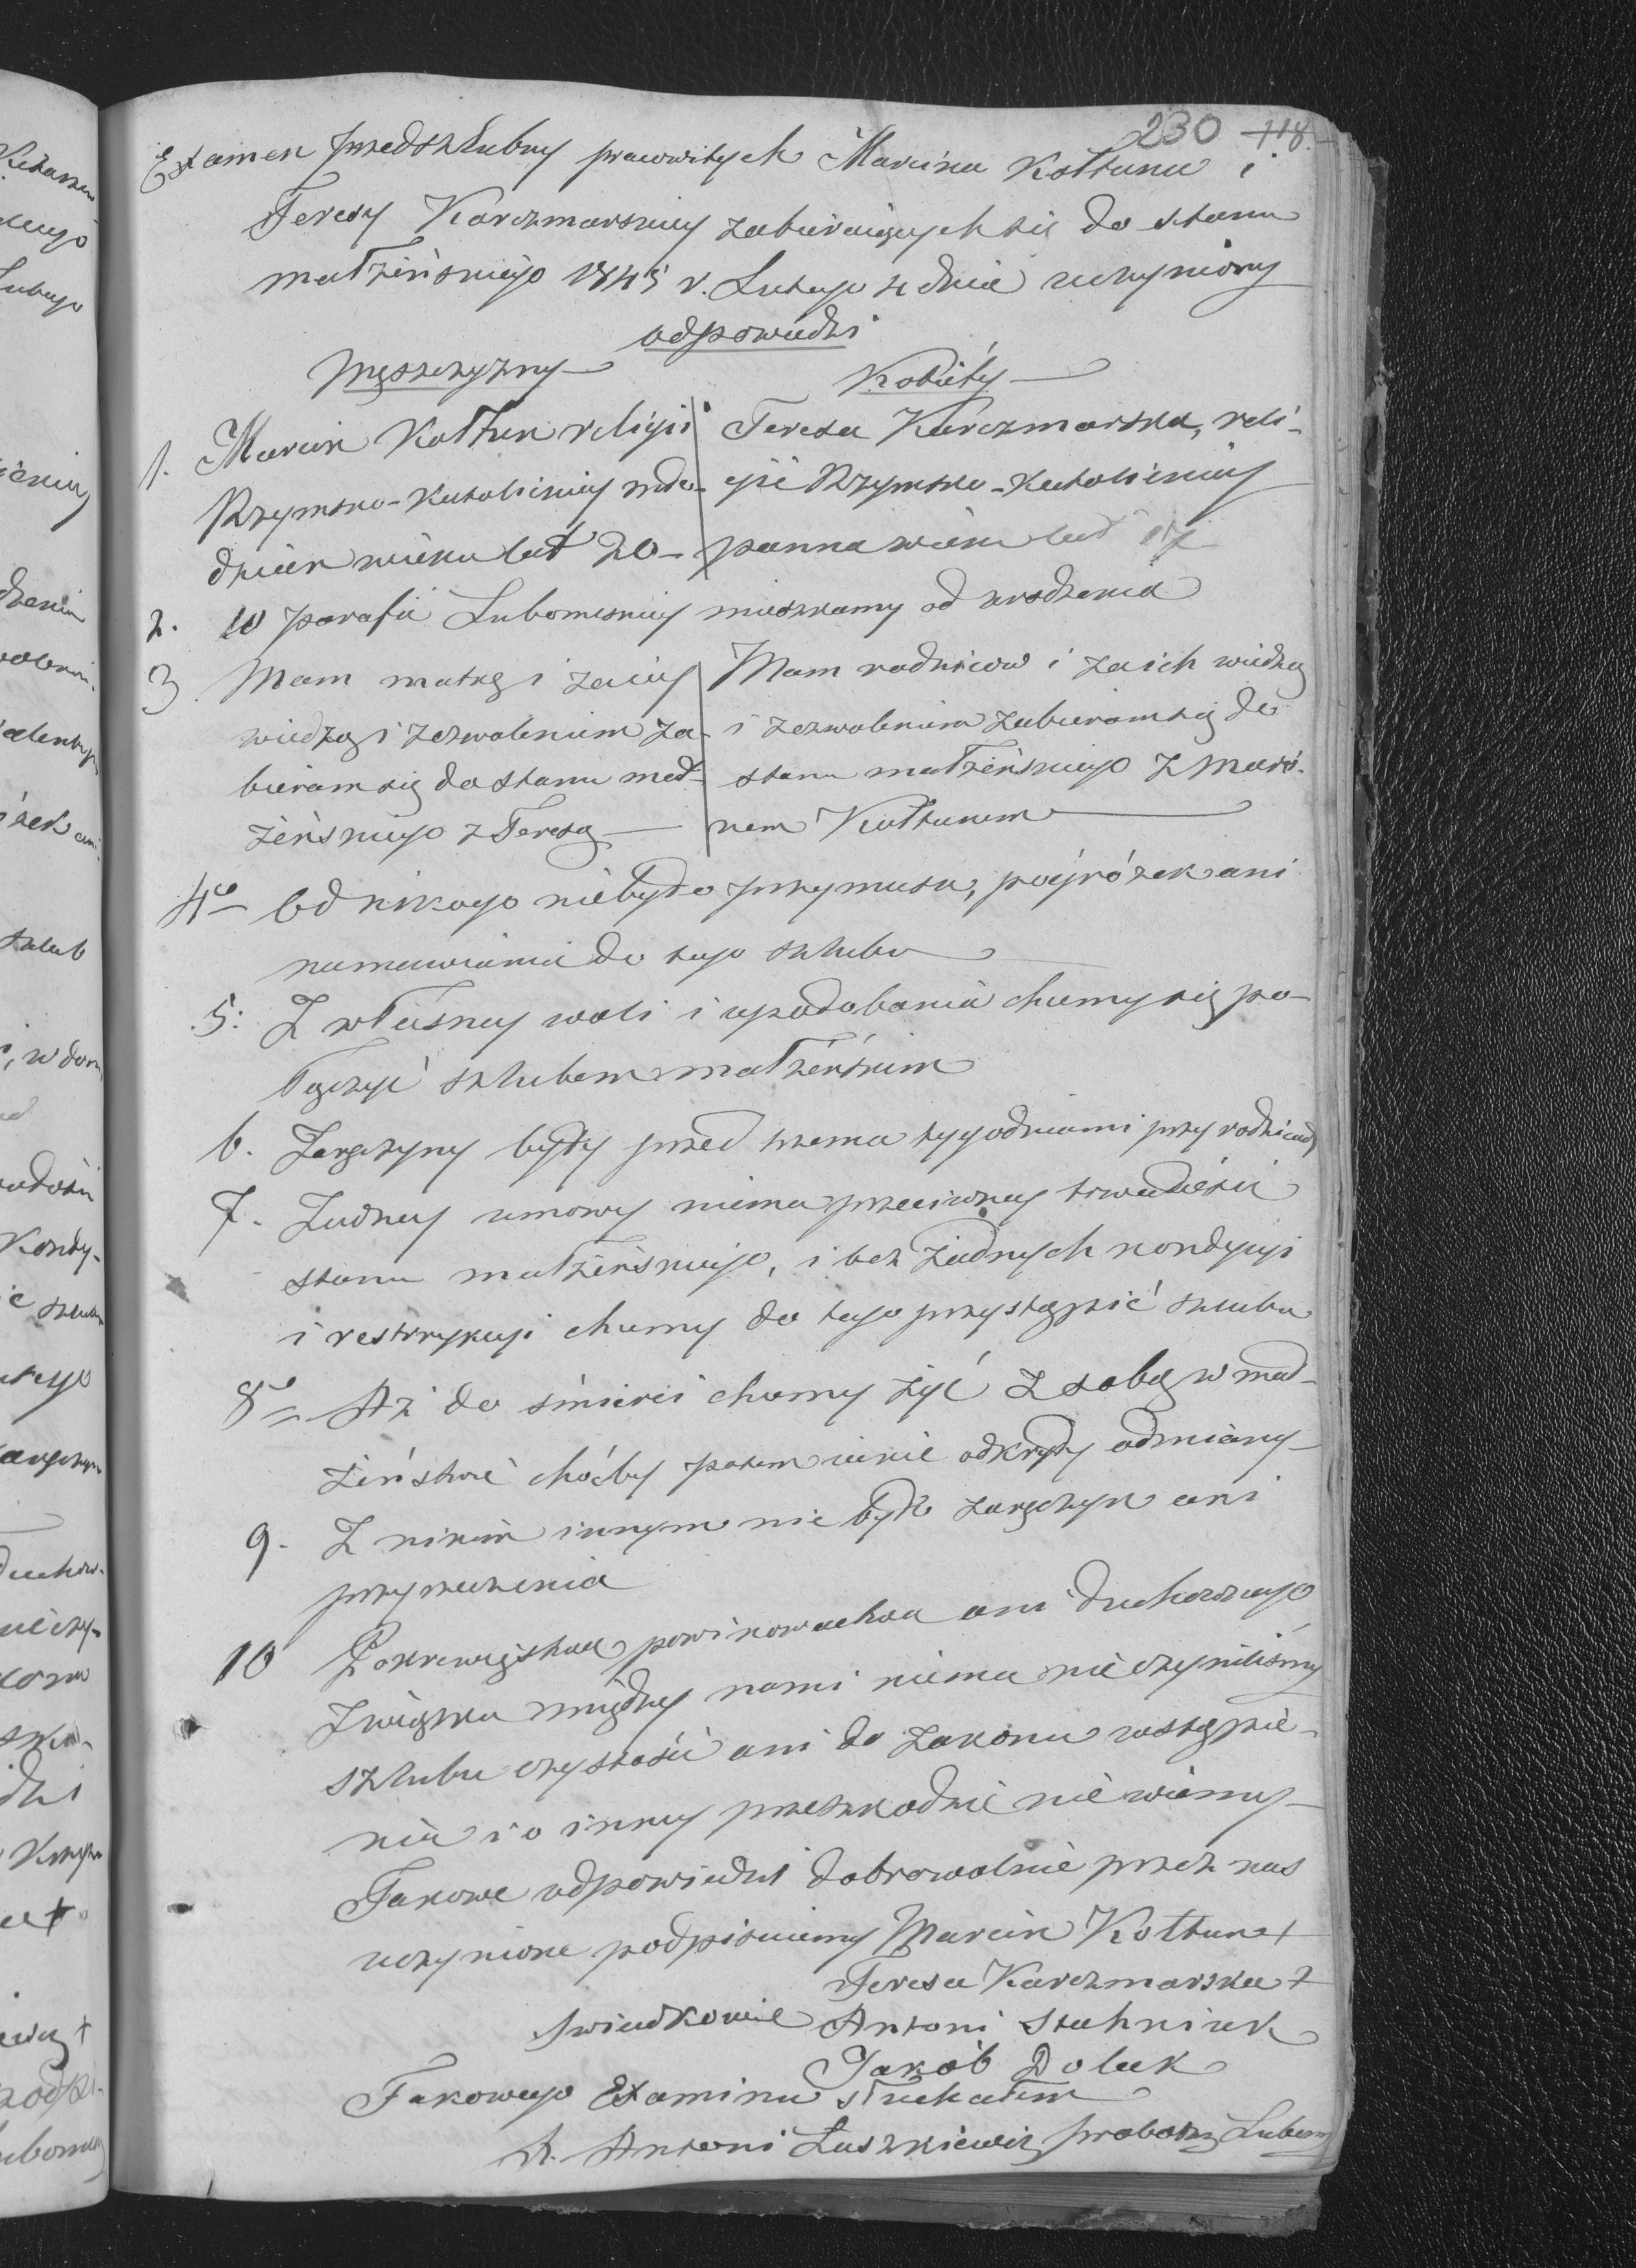 230 118.
Examen przedszlubny pracowitych Marcina Kołtuna i
Teresy Karczmarskiej zabieraiących się do stanu
małżeńskiego 1845 r. Lutego 4 dnia uczyniony
odpowiedzi
Męszczyzny Kobiéty
1. Marcin Kołtun religii Teresa Karczmarska, reli-
Rzymsko-Katolickiej mło- gii Rzymsko-Katolickiej
dzian wieku lat 20 panna wieku lat 17
2. W parafii Lubomeskiej mieszkamy od urodzenia
3 Mam matkę i za iey Mam rodziców i za ich wiedzą
wiedzą i zezwoleniem za- i zezwoleniem zabieram się do
bieram się do stanu mał- stanu małżeńskiego z Marci-
żeńskiego z Teresą nem Kołtunem
4o Od nikogo niebyło przymusu, pogróżek ani
namawiania do tego szlubu
5. Z własney woli i upodobania chcemy się po-
łączyć szlubem małżeńskim
6. Zaręczyny były przed trzema tygodniami przy rodzicach
7. Żadney umowy niema przeciwney trwałości
stanu małżeńskiego, i bez żadnych kondycyi
i restrykcyi chcemy do tego przystąpić szlubu
8o Aż do śmierci chcemy żyć z sobą w mał-
żeństwie choćby potem iakie odkryły odmiany
9. Z nikim innym nie było zaręczyn ani
przyrzeczenia
10 Pokrewieństwa powinowactwa ani duchownego
związku między nami niema nie czyniliśmy
szlubu czystości ani do zakonu wstąpie-
nia i o inney przeszkodzie nie wiemy
Takowe odpowiedzi dobrowolnie przez nas
uczynione podpisuiemy Marcin Kołtun +
Teresa Karczmarska +
Swiadkowie Antoni Stachniuk
Jakób Doluk
Takowego Examinu słuchałem
X. Antoni Łuszkiewicz proboszcz Lubom